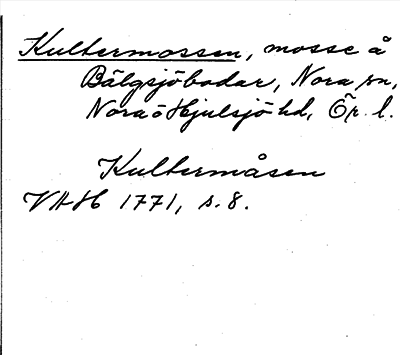 Kultermossen, mosse å
Bälgsjöbodar, Nora sn,
Nora o Hjulsjö hd, Ör. l.
Kultermåsen
VHH 1771, s. 8.